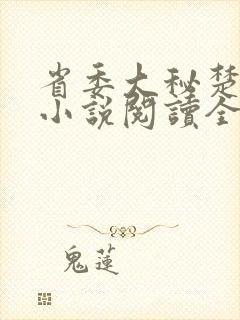 省委大秘楚
小說閱讀全
鬼蓮